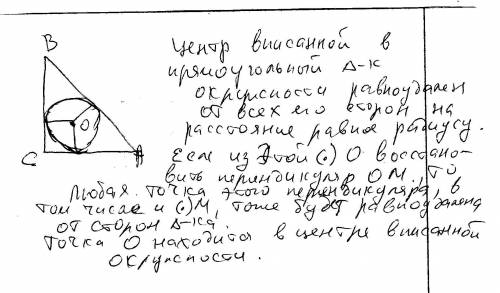 B
Центр вписанной в
прямоугольный Δ-к
окружности равноудален
О
от всех его сторон на
расстояние равное радиусу.
C
A
Если из этой (•) О восстано-
вить перпендикуляр ОМ, то
любая точка этого перпендикуляра, в
том числе и (•) М, тоже будет равноудалена
от сторон Δ-ка.
Точка О находится в центре вписанной
окружности.